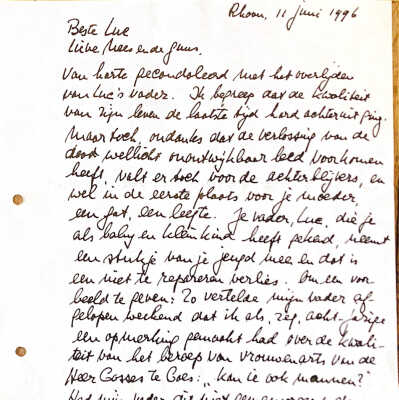 Rhoon, 11 juni 1996
Beste Luc
Lieve Mees en de guus.
Van harte gecondoleerd met het overlijden
van Luc's vader. Ik begreep dat de kwaliteit
van zijn leven de laatste tijd hard achteruit ging.
Maar toch, ondanks dat de verlossing van de
dood wellicht onontwijkbaar leed voorkomen
heeft, valt er toch voor de achterblijvers, en
wel in de eerste plaats voor je moeder,
een gat, een leegte. Je vader, Luc, die je
als baby en klein kind heeft gekend, neemt
een stukje van je jeugd mee en dat is
een niet te repareren verlies. Om een voor
beeld te geven: Zo vertelde mijn vader af-
gelopen weekend dat ik als, zeg, acht-jarige
een opmerking gemaakt had over de kwali-
teit van het beroep van vrouwenarts van de
Heer Gosses te Goes: "kan ie ook mannen?"
Had mijn vader dit niet